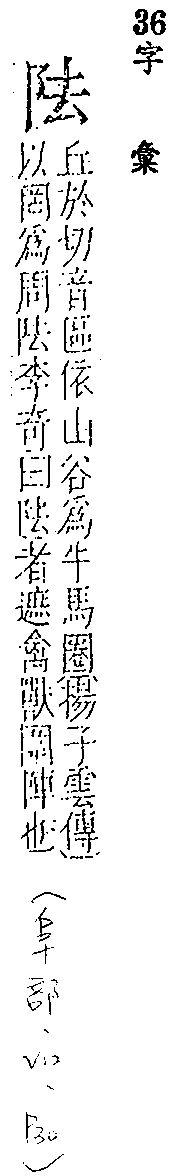 36字彙
阹
丘於切音區依山谷爲牛馬圈揚子雲傳
以罔爲周阹李奇曰阹者遮禽獸圍陣也
(阜部、